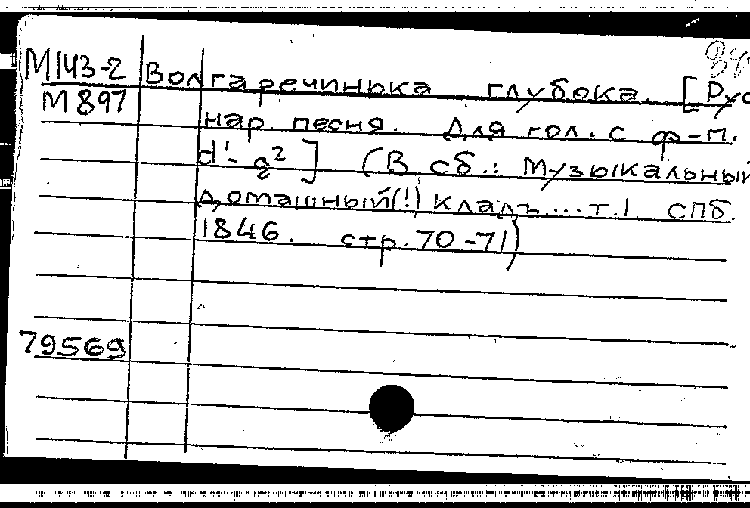 М143-2 Волга реченька глубока. [Рус
М897 нар. песня. Для гол. с ф-п.
d¹-g²] (В сб.: Музыкальный
домашный(!) кладъ...т.1. СПб.
1846. стр. 70-71)
79569